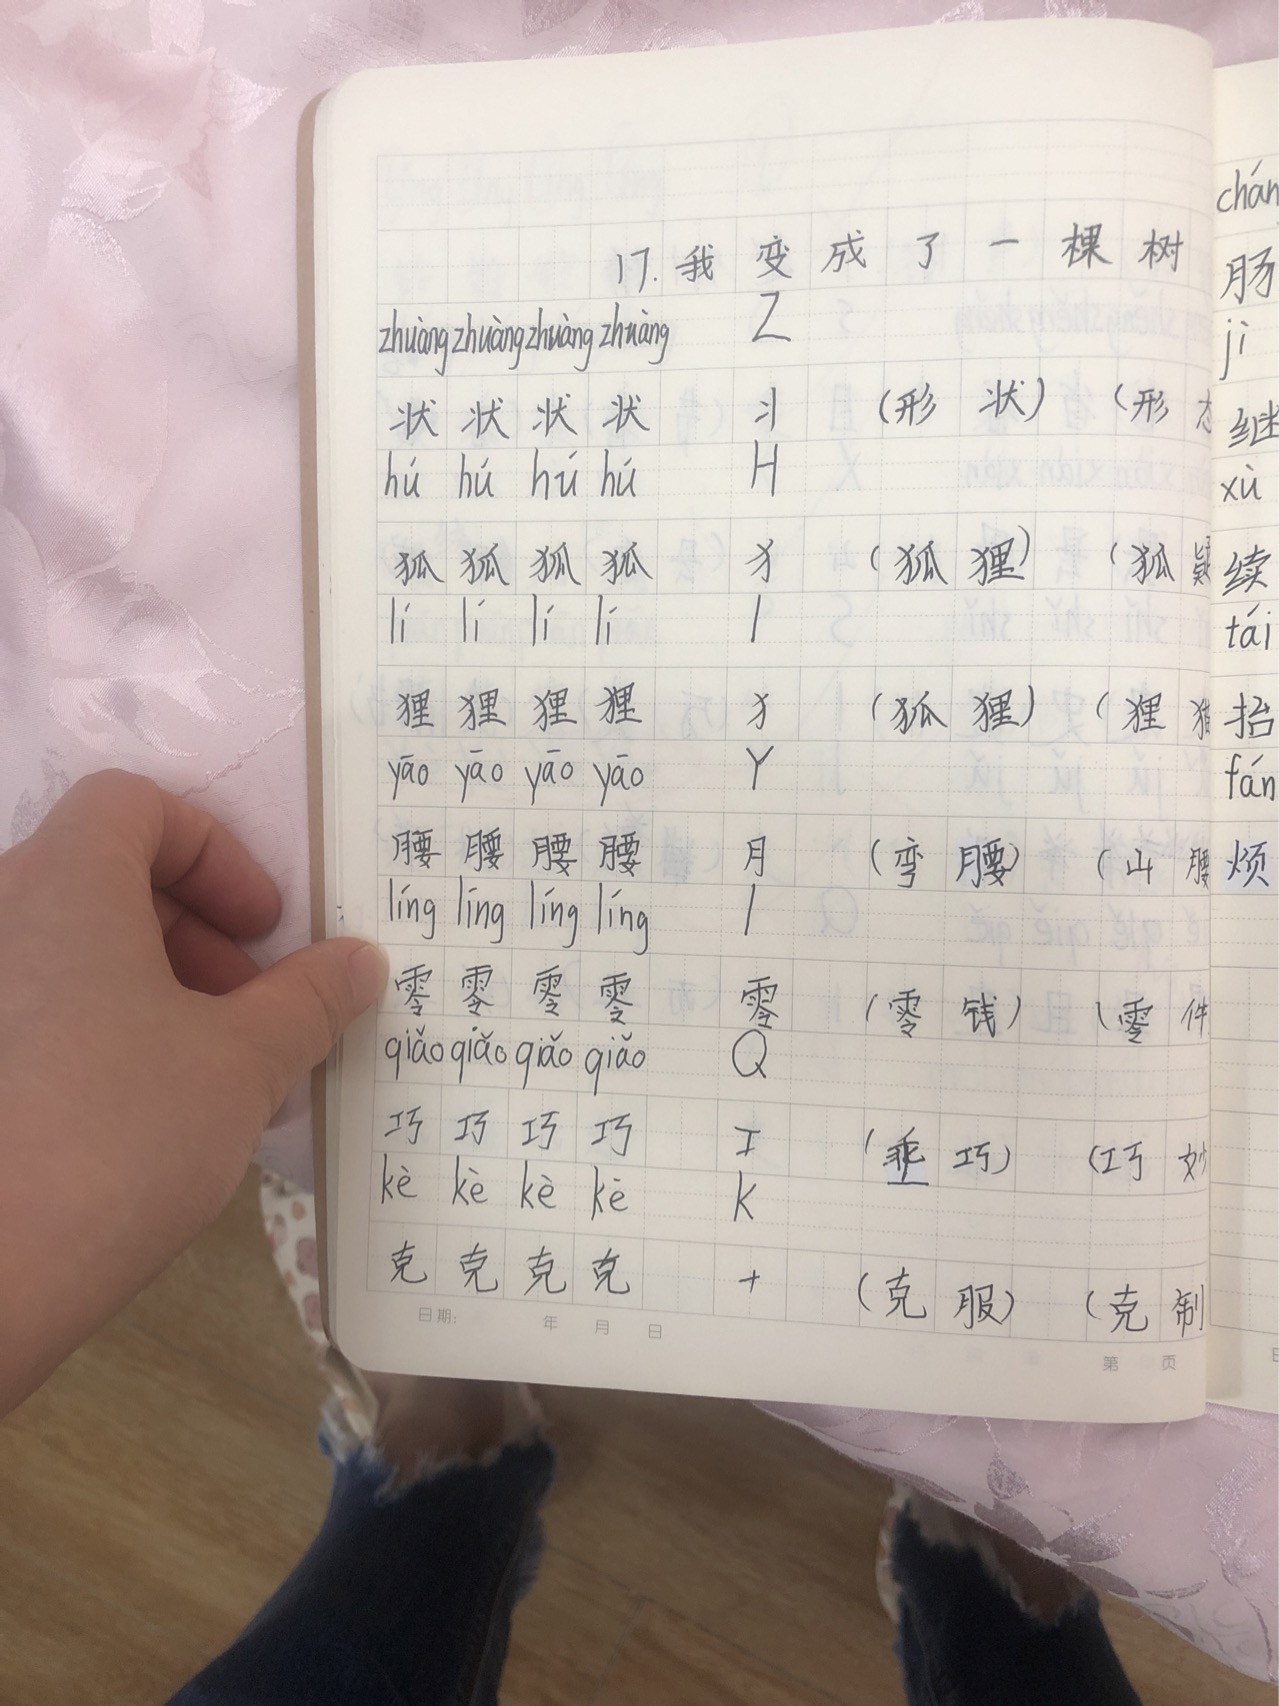 17. 我变成了一棵树
zhuàng zhuàng zhuàng zhuàng Z
状 状 状 状 丬 (形状) (形态
hú hú hú hú H
狐 狐 狐 狐 犭 (狐狸) (狐疑
lí lí lí lí l
狸 狸 狸 狸 犭 (狐狸) (狸猫
yāo yāo yāo yāo Y
腰 腰 腰 腰 月 (弯腰) (山腰
líng líng líng líng l
零 零 零 零 零 (零钱) (零件
qiǎo qiǎo qiǎo qiǎo Q
巧 巧 巧 巧 工 (乖巧) (巧妙
kè kè kè kè K
克 克 克 克 十 (克服) (克制
日期: 年 月 日
第 页
chán
肠
jì
继
xù
续
tái
抬
fán
烦